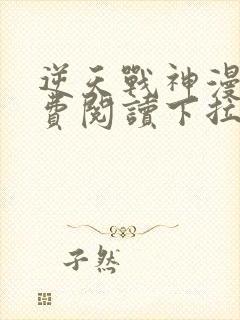 逆天戰神漫
費閱讀下拉
子然